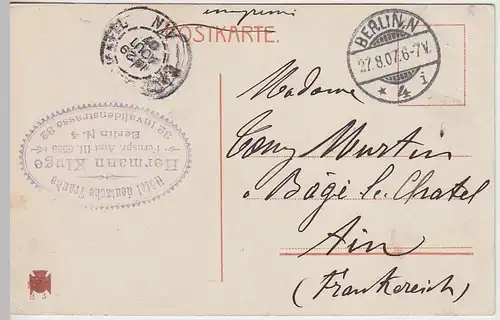 imprimé
POSTKARTE.
BERLIN.N
27.8.07.6-7V.
* 4 i
AIN
29
AOUT
07
Madame
Martin
Bâgé le Chatel
Ain
(Frankreich)
Hôtel deutsche Traube
Hermann Kluge
Fernspr. Amt III. 6553
Berlin N. 4
32 Invalidenstrasse 32